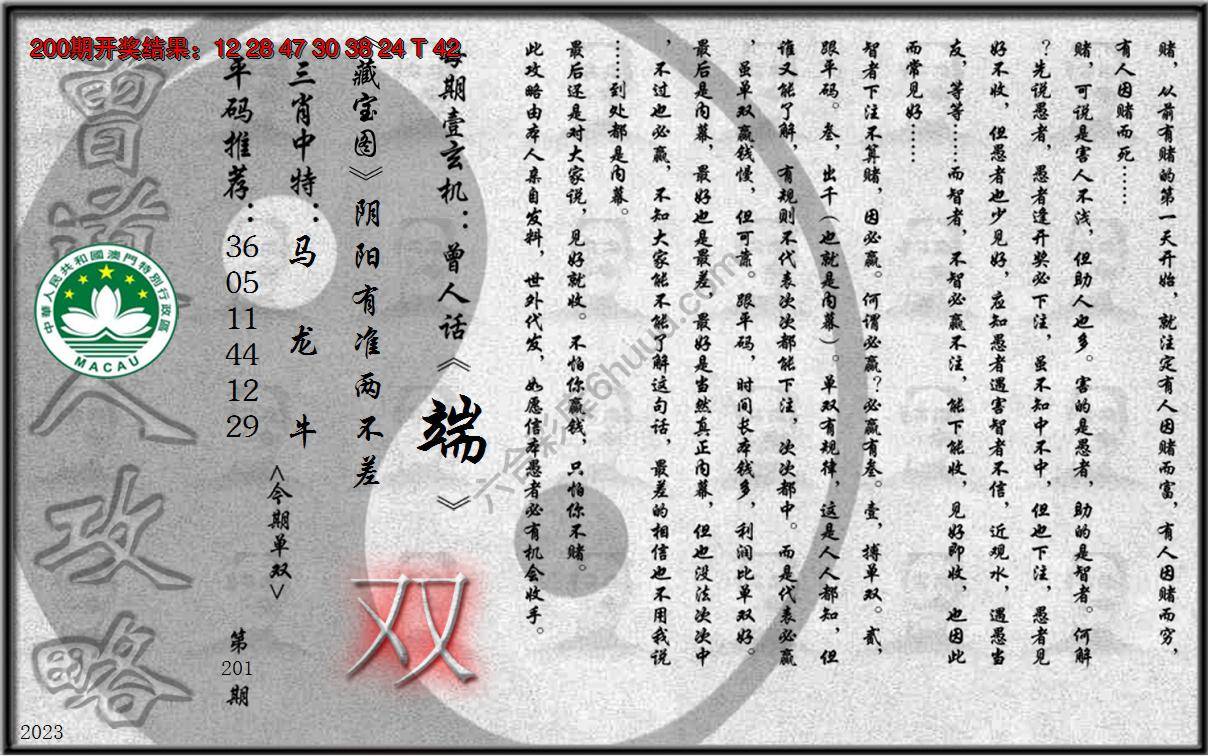 200期开奖结果：12 28 47 30 38 24 T 42
赌，从前有赌的第一天开始，就注定有人因赌而富，有人因赌而穷，
有人因赌而死……
赌，可说是害人不浅，但助人也多。害的是愚者，助的是智者。何解
？先说愚者，愚者逢开奖必下注，虽不知中不中，但也下注，愚者见
好不收，但愚者也少见好，应知愚者遇害智者不信，近观水，遇愚当
友，等等……而智者，不智必赢不注，能下能收，见好即收，也因此
而常见好……
智者下注不算赌，因必赢。何谓必赢？必赢有叁。壹，搏单双。贰，
跟平码。叁，出千（也就是内幕）。单双有规律，这是人人都知，但
谁又能了解，有规则不代表次次都能下注，次次都中。而是代表必赢
，虽单双赢钱慢，但可靠。跟平码，时间长本钱多，利润比单双好。
最后是内幕，最好也是最差，最好是当然真正内幕，但也没法次次中
，不过也必赢，不知大家能不能了解这句话，最差的相信也不用我说
……到处都是内幕。
最后还是对大家说，见好就收。不怕你赢钱，只怕你不赌。
此攻略由本人亲自发料，世外代发，如愿信本愚者必有机会收手。
每期壹玄机：曾人话《端》
《藏宝图》阴阳有准两不差
双
三肖中特：马 龙 牛
<今期单双>
平码推荐：36 05 11 44 12 29
第201期
曾道人攻略
中華人民共和國澳門特別行政區
MACAU
2023